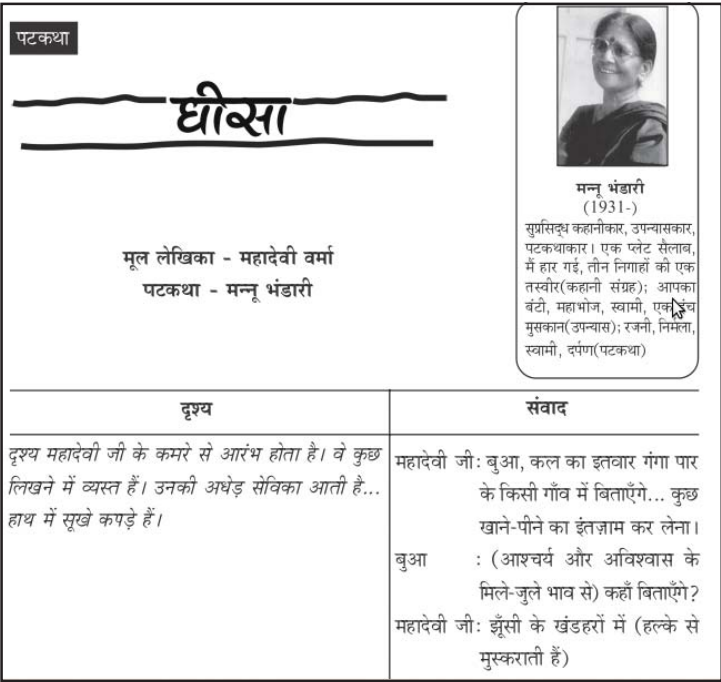 पटकथा
घीसा
मूल लेखिका - महादेवी वर्मा
पटकथा - मन्नू भंडारी
मन्नू भंडारी
(1931-)
सुप्रसिद्ध कहानीकार, उपन्यासकार,
पटकथाकार। एक प्लेट सैलाब,
मैं हार गई, तीन निगाहों की एक
तस्वीर(कहानी संग्रह); आपका
बंटी, महाभोज, स्वामी, एक इंच
मुसकान(उपन्यास); रजनी, निर्मला,
स्वामी, दर्पण(पटकथा)
दृश्य
दृश्य महादेवी जी के कमरे से आरंभ होता है। वे कुछ
लिखने में व्यस्त हैं। उनकी अधेड़ सेविका आती है...
हाथ में सूखे कपड़े हैं।
संवाद
महादेवी जी: बुआ, कल का इतवार गंगा पार
के किसी गाँव में बिताएँगे... कुछ
खाने-पीने का इंतज़ाम कर लेना।
बुआ : (आश्चर्य और अविश्वास के
मिले-जुले भाव से) कहाँ बिताएँगे?
महादेवी जी: झूँसी के खंडहरों में (हल्के से
मुस्कराती हैं)